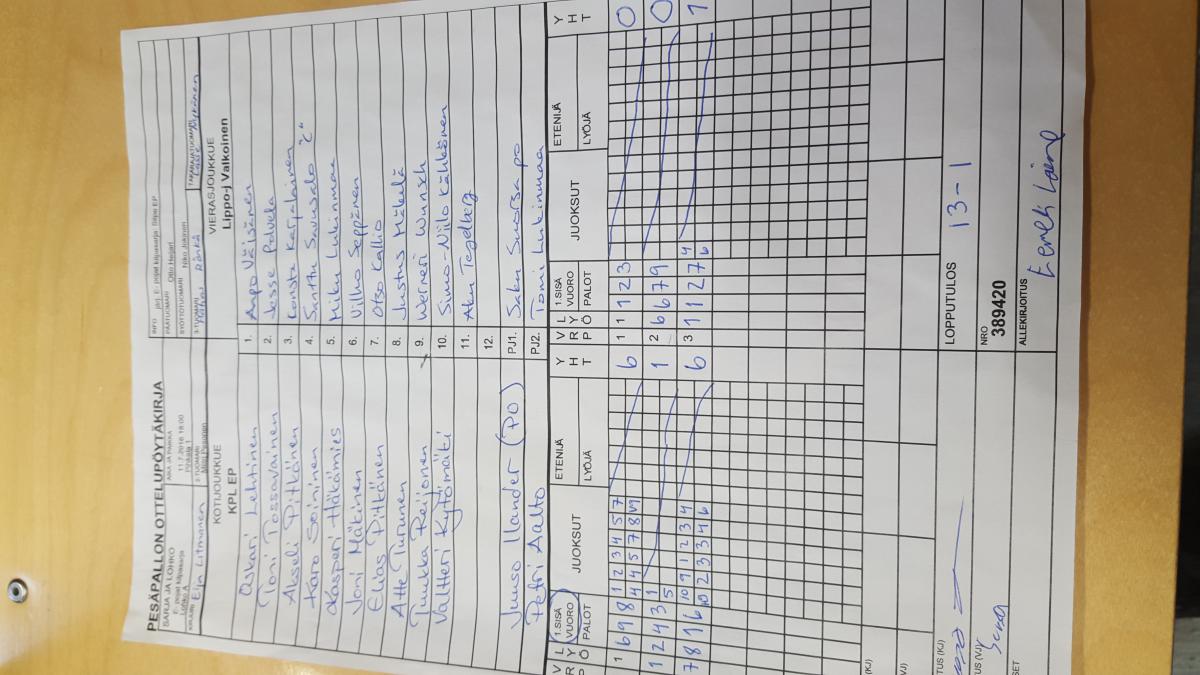 PESÄPALLON OTTELUPÖYTÄKIRJA
SARJA JA LOHKO
AIKA JA PAIKKA
INFO
E- pojat kilpasarja
Lohko A
11.7.2016 18:00
Pihkala 1
PÄÄTUOMARI
Otto Heijari
SYÖTTÖTUOMARI
Niko Jokinen
KIRJURI
Eija Litmanen
2-TUOMARI
3-TUOMARI
TAKARAJATUOMARI
KOTIJOUKKUE
KPL EP
VIERASJOUKKUE
Lippo-j Valkoinen
Oskari Lehtinen 1. Arpo Väisänen
Toni Tossavainen 2. Jesse Polvela
Akseli Pitkänen 3. Konsta Karjalainen
Karo Soininen 4. Santtu Savusalo "C"
Kasperi Hätkämies 5. Miku Lukinmaa
Joni Mäkinen 6. Vilho Seppänen
Elias Pitkänen 7. Otso Kallio
Atte Turunen 8. Justus Mäkelä
Tuukka Reijonen 9. Werneri Wunsch
Valtteri Kytömäki 10. Simo-Niilo Kähkönen
11. Aku Tegelberg
12.
Juuso Ilander (PO) PJ1. Saku Suorsa po
Petri Aalto PJ2. Tomi Lukinmaa
V L R Y P Ö 1.SISÄ VUORO PALOT JUOKSUT ETENIJÄ LYÖJÄ Y H T V L R Y P Ö 1.SISÄ VUORO PALOT JUOKSUT ETENIJÄ LYÖJÄ Y H T
1 6 9 8 1 2 3 4 5 7 6 1 1 1 2 3 0
4 4 5 7 8
1 2 4 3 1 1 2 6 6 7 9 0
5
7 8 1 6 10 9 1 2 3 4 6 3 1 1 2 7 4 1
10 2 3 3 4 6 6
(KJ)
VJ)
TUS (KJ)
LOPPUTULOS 13-1
TUS (VJ)
NRO
389420
SET
ALLEKIRJOITUS